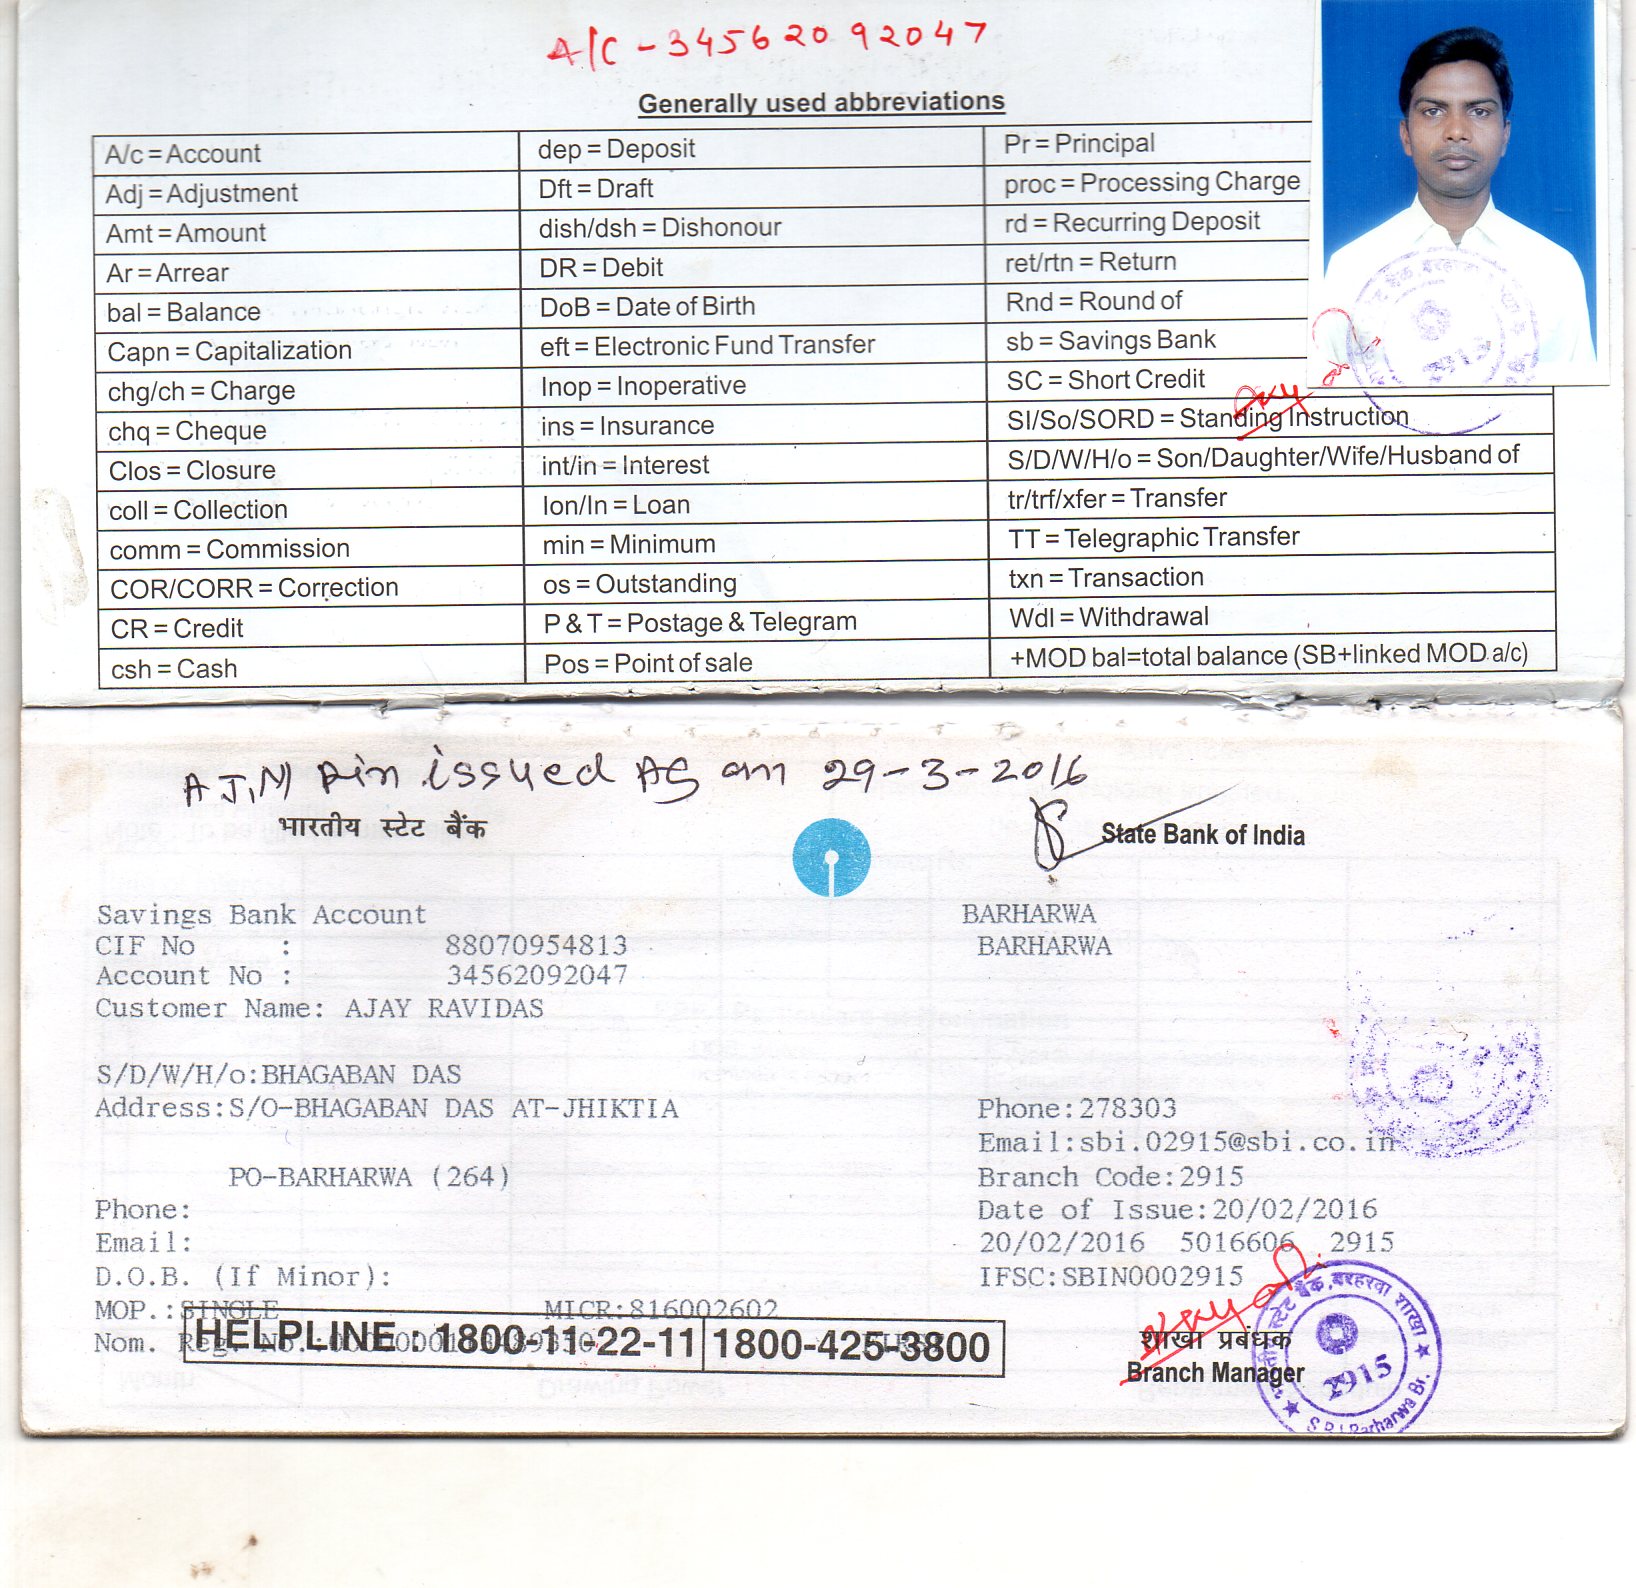 A/C - 34562092047
Generally used abbreviations
A/c = Account
dep = Deposit
Pr = Principal
Adj = Adjustment
Dft = Draft
proc = Processing Charge
Amt = Amount
dish/dsh = Dishonour
rd = Recurring Deposit
Ar = Arrear
DR = Debit
ret/rtn = Return
bal = Balance
DoB = Date of Birth
Rnd = Round of
Capn = Capitalization
eft = Electronic Fund Transfer
sb = Savings Bank
chg/ch = Charge
Inop = Inoperative
SC = Short Credit
chq = Cheque
ins = Insurance
SI/So/SORD = Standing Instruction
Clos = Closure
int/in = Interest
S/D/W/H/o = Son/Daughter/Wife/Husband of
coll = Collection
lon/ln = Loan
tr/trf/xfer = Transfer
comm = Commission
min = Minimum
TT = Telegraphic Transfer
COR/CORR = Correction
os = Outstanding
txn = Transaction
CR = Credit
P & T = Postage & Telegram
Wdl = Withdrawal
csh = Cash
Pos = Point of sale
+MOD bal=total balance (SB+linked MOD a/c)
2915
pin issued on 29-3-2016
भारतीय स्टेट बैंक
State Bank of India
Savings Bank Account
BARHARWA
CIF No : 88070954813
BARHARWA
Account No : 34562092047
Customer Name: AJAY RAVIDAS
S/D/W/H/o:BHAGABAN DAS
Address:S/O-BHAGABAN DAS AT-JHIKTIA
Phone:278303
Email:sbi.02915@sbi.co.in
PO-BARHARWA (264)
Branch Code:2915
Phone:
Date of Issue:20/02/2016
Email:
20/02/2016 5016606 2915
D.O.B. (If Minor):
IFSC:SBIN0002915
MOP.:SINGLE MICR:816002602
Nom. Reg. No.:
HELPLINE : 1800-11-22-11 1800-425-3800
शाखा प्रबंधक
Branch Manager
स्टेट बैंक, बरहरवा शाखा
2915
S B I Barharwa Br.